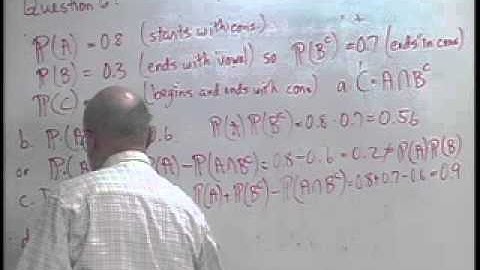 Question 6:
P(A) = 0.8 (starts with cons)
P(B) = 0.3 (ends with vowel) so P(B^c) = 0.7 (ends in cons)
P(C) (begins and ends with cons) a C = A∩B^c
b. P(A .6 P(A)P(B^c) = 0.8·0.7 = 0.56
or P(A A) - P(A∩B^c) = 0.8 - 0.6 = 0.2 ≠ P(A)P(B)
c. P(A) + P(B^c) - P(A∩B^c) = 0.8 + 0.7 - 0.6 = 0.9
d